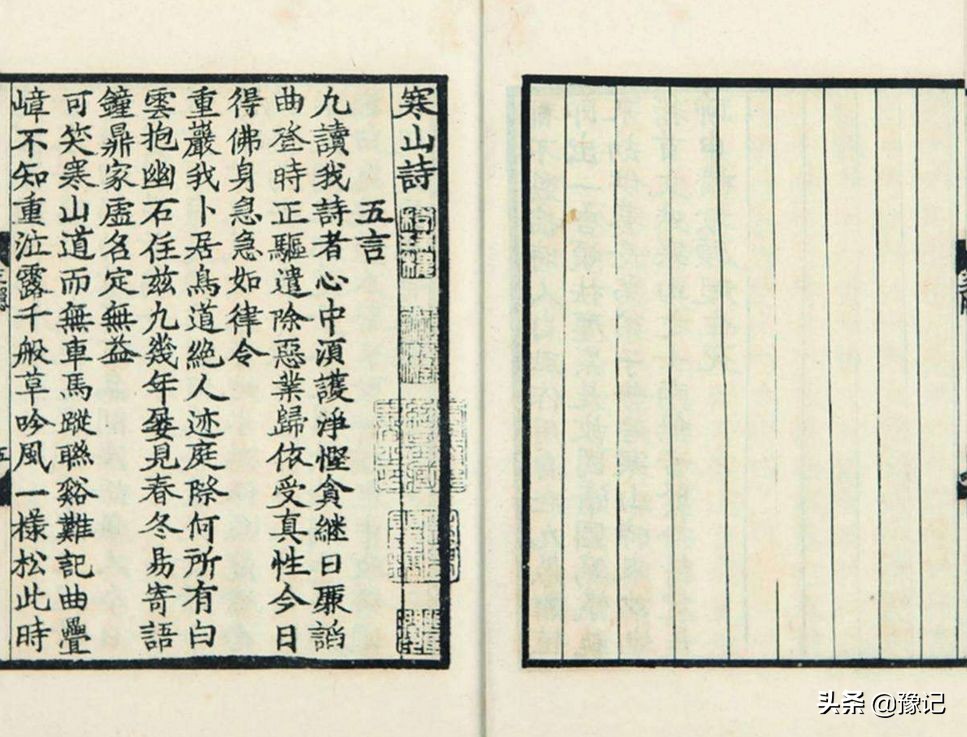 寒山詩
五言
凡讀我詩者心中須護淨慳貪繼日廉謟
曲登時正驅遣除惡業歸依受真性今日
得佛身急急如律令
重巖我卜居鳥道絕人迹庭除何所有白
雲抱幽石住茲凡幾年屢見春冬易寄語
鐘鼎家虛名定無益
可笑寒山道而無車馬蹤聯谿難記曲疊
嶂不知重泣露千般草吟風一樣松此時
头条 @豫记